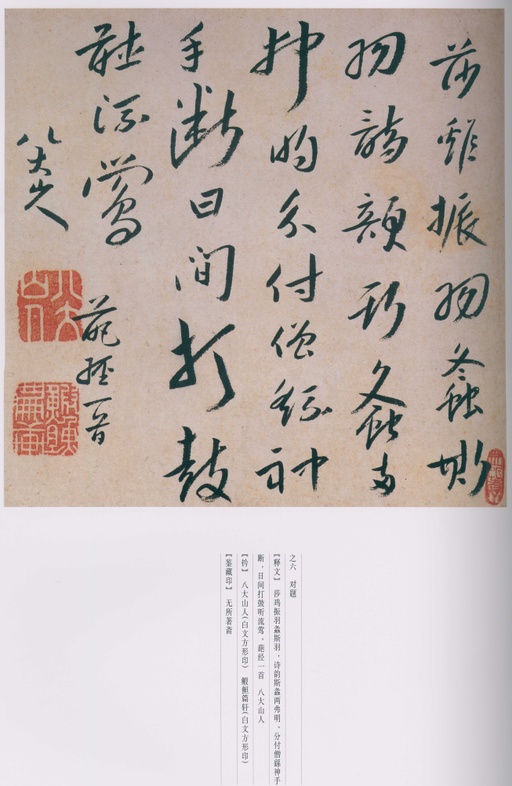 莎雞振羽螽斯
羽詩韻斯螽兩
弗明分付僧繇神
手斷日間打鼓
聽流鶯
葩經一首
八大山人
之六 对题
【释文】 莎鸡振羽螽斯羽，诗韵斯螽两弗明，分付僧繇神手
断，日间打鼓听流莺。葩经一首 八大山人
【钤】 八大山人(白文方形印) 鰕䱇篇轩(白文方形印)
【鉴藏印】 无所著斋